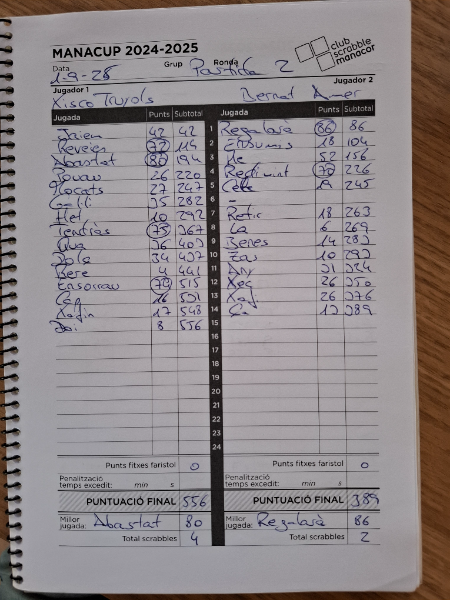 MANACUP 2024-2025
club scrabble manacor
Data 1-9-25 Grup Ronda Partida 2
Jugador 1 Jugador 2
Xisco Truyols Bernat Amer
Jugada Punts Subtotal Jugada Punts Subtotal
42 42 1 Regalarà 86 86
72 114 2 Ensumis 18 104
Abastat 80 194 3 He 52 156
26 220 4 70 226
Tocats 27 247 5 19 245
35 282 6 -
10 292 7 Retic 18 263
Tendries 73 367 8 La 6 269
36 403 9 Benes 14 283
34 437 10 10 293
Bere 4 441 11 Any 31 324
Ensorrau 74 515 12 Xeq 26 350
16 531 13 26 376
17 548 14 13 389
8 556 15
16
17
18
19
20
21
22
23
24
Punts fitxes faristol 0 Punts fitxes faristol 0
Penalització temps excedit: min s Penalització temps excedit: min s
PUNTUACIÓ FINAL 556 PUNTUACIÓ FINAL 389
Millor jugada: Abastat 80 Millor jugada: Regalarà 86
Total scrabbles 4 Total scrabbles 2